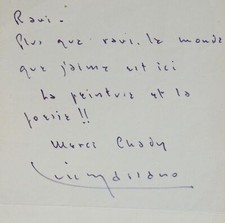 Ravi.
Plus que ravi. Le monde
que j'aime est ici
La peinture et la
poésie !!
Merci Chady